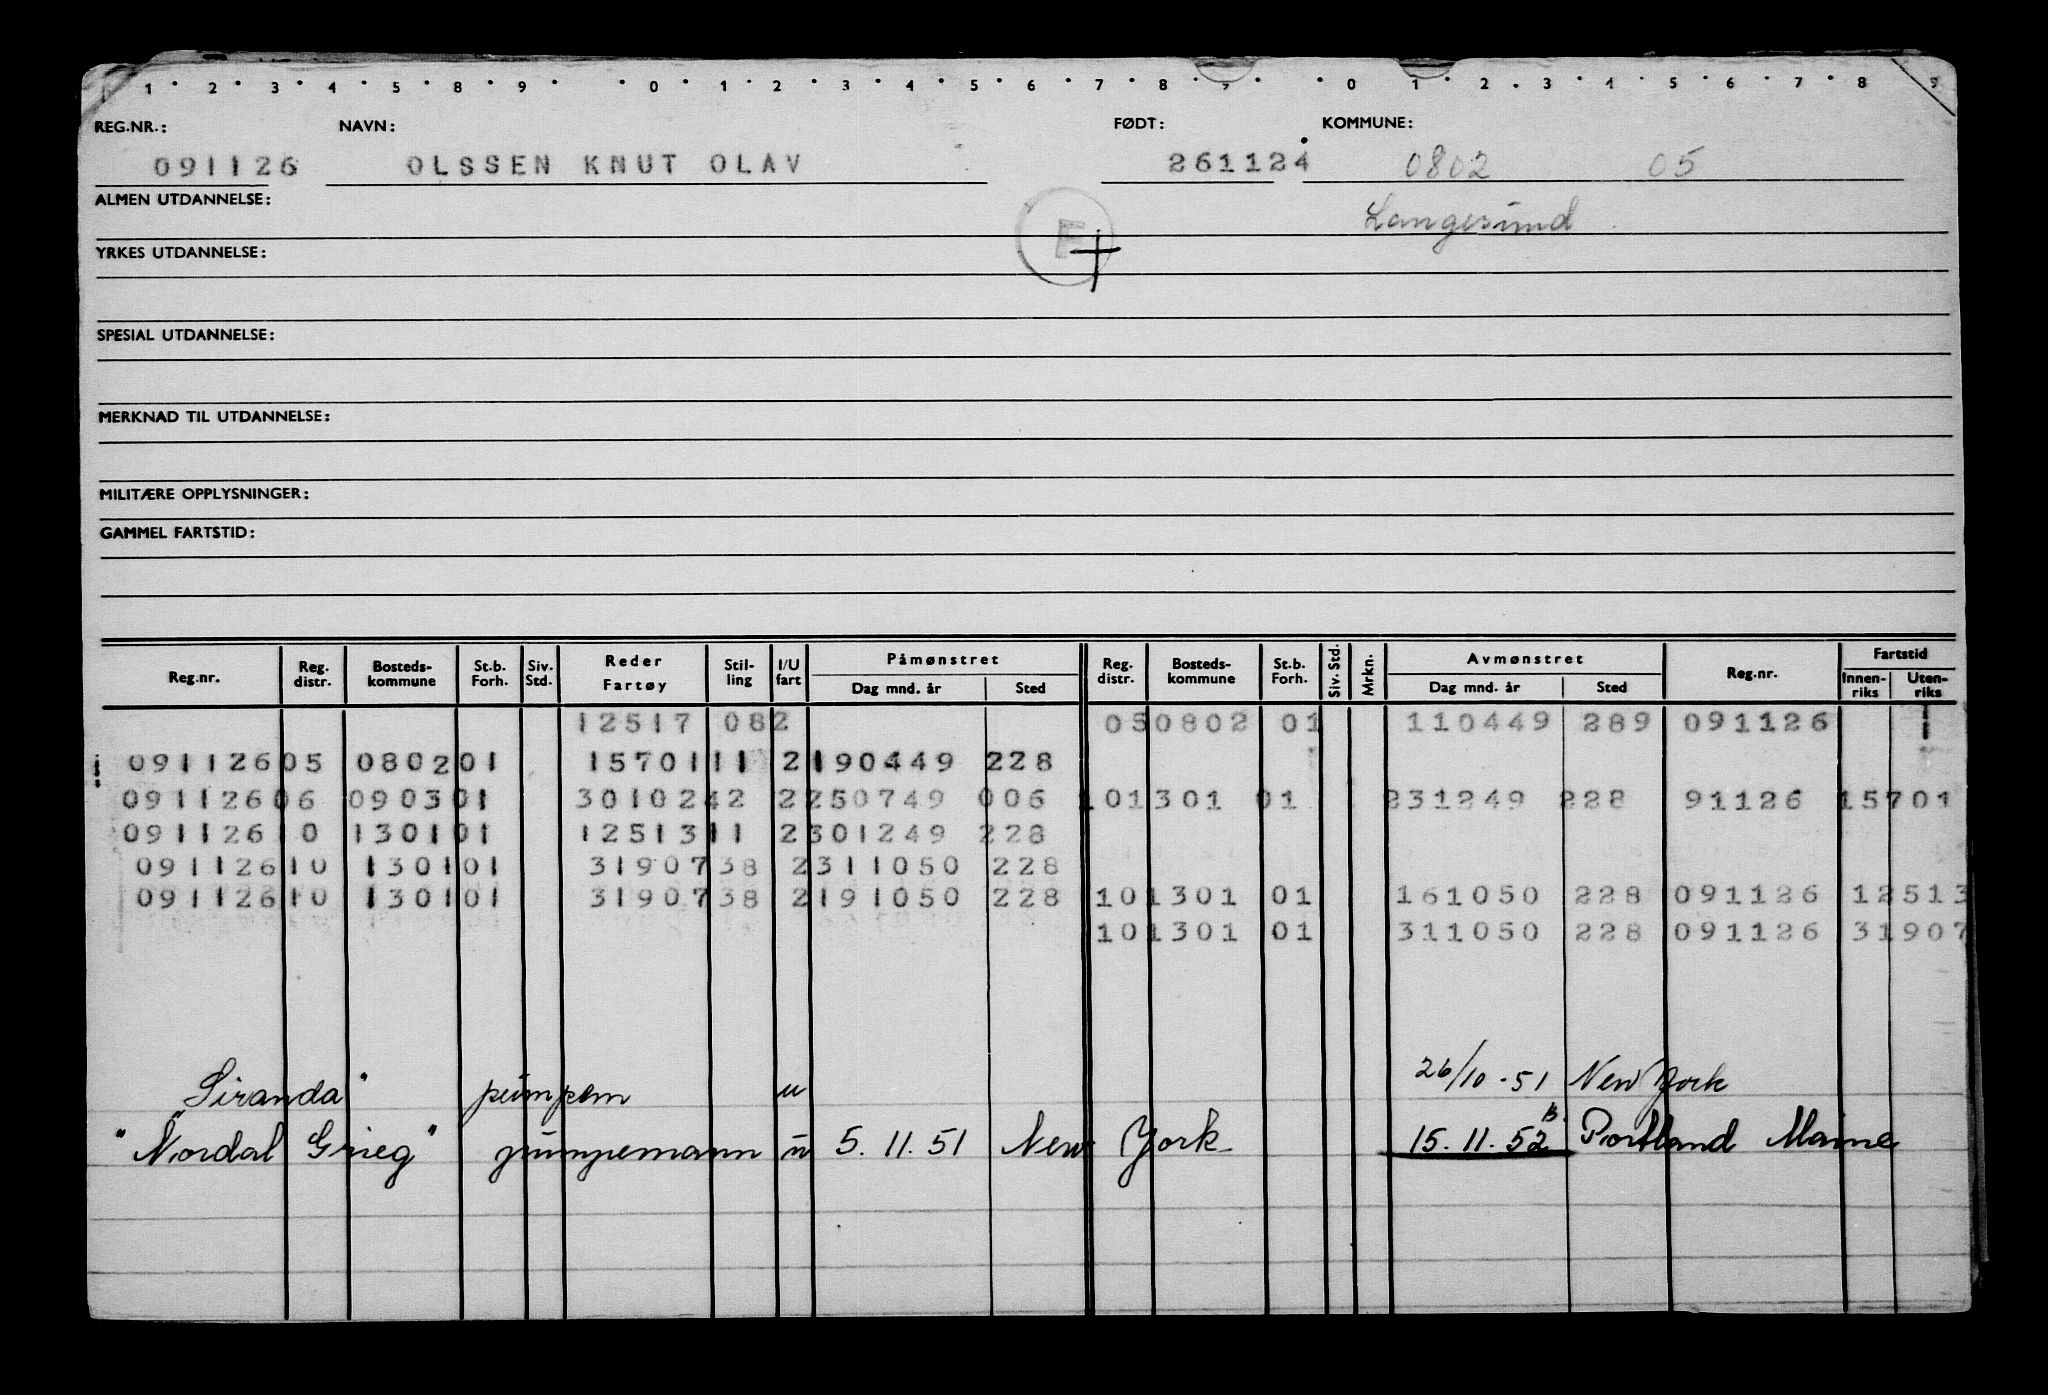 1 2 3 4 5 8 9 0 1 2 3 4 5 6 7 8 9 0 1 2 3 4 5 6 7 8 9
REG.NR.: NAVN: FØDT: KOMMUNE:
091126 OLSSEN KNUT OLAV 261124 0802 05
ALMEN UTDANNELSE: Langesund
E
YRKES UTDANNELSE:
SPESIAL UTDANNELSE:
MERKNAD TIL UTDANNELSE:
MILITÆRE OPPLYSNINGER:
GAMMEL FARTSTID:
Reg.nr. Reg. distr. Bosteds-kommune St.b. Forh. Siv. Std. Reder Fartøy Stil-ling I/U fart Påmønstret Dag mnd. år Sted Reg. distr. Bosteds-kommune St.b. Forh. Siv. Std. Mrkn. Avmønstret Dag mnd. år Sted Reg.nr. Fartstid Innen-riks Uten-riks
12517 082 050802 01 110449 289 091126
09112605 080201 1570111 2190449 228
09112606 090301 3010242 2250749 006 101301 01 231249 228 91126 15701
09112610 130101 1251311 2301249 228
09112610 130101 3190738 2311050 228
09112610 130101 3190738 2191050 228 101301 01 161050 228 091126 12513
101301 01 311050 228 091126 31907
Siranda" pumpem u 26/10-51 New York
"Nordal Grieg" pumpemann u 5.11.51 New York 15.11.52 Portland Maine